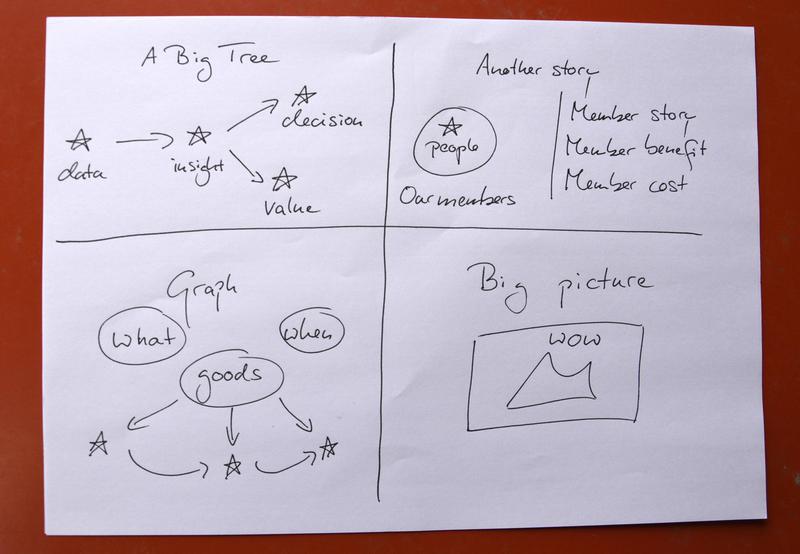 A Big Tree
data
insight
decision
value
Another story
people
Our members
Member story
Member benefit
Member cost
Graph
what
when
goods
Big picture
WOW